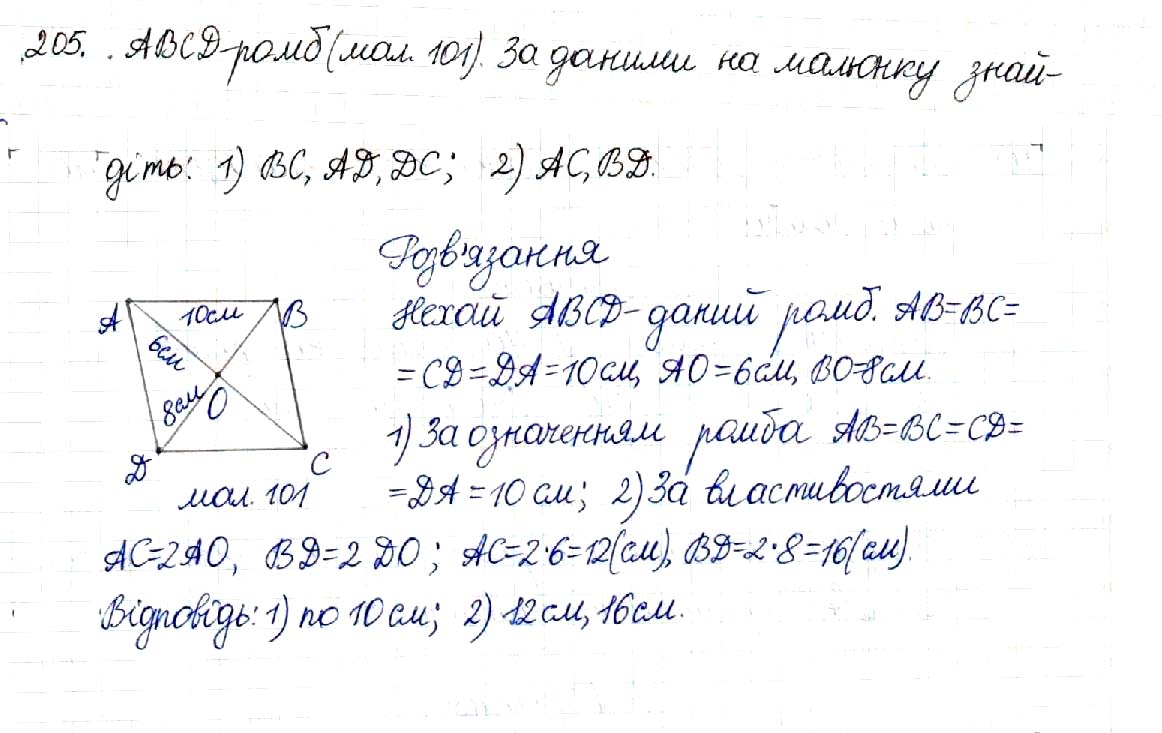 205. ABCD-ромб (мал. 101). За даними на малюнку знай-
діть: 1) BC, AD, DC; 2) AC, BD.
Розв'язання
A 10см B
6см
8см O
D C
мал. 101
Нехай ABCD-даний ромб. AB=BC=
=CD=DA=10см, AO=6см, BO=8см.
1) За означенням ромба AB=BC=CD=
=DA=10см; 2) За властивостями
AC=2AO, BD=2DO; AC=2·6=12(см), BD=2·8=16(см).
Відповідь: 1) по 10см; 2) 12см, 16см.